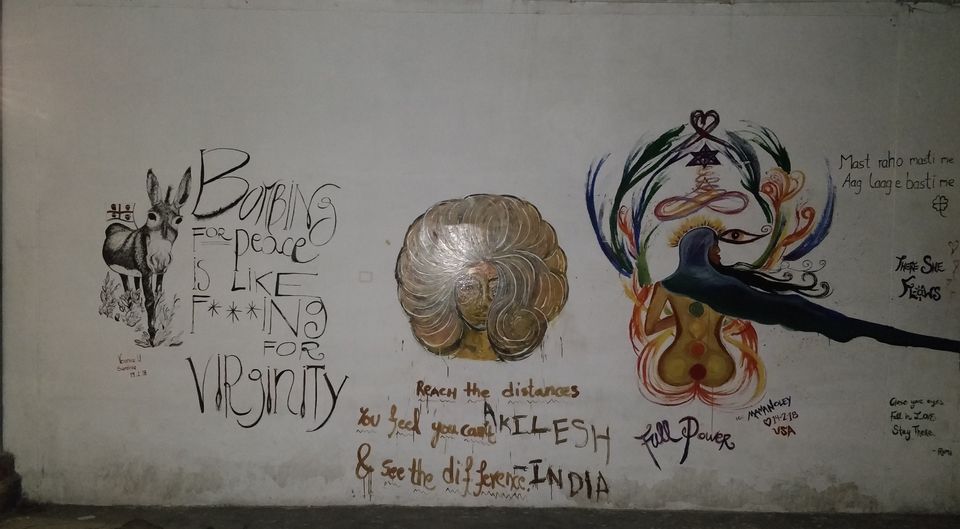 BOMBING
FOR peace
is LIKE
F***ING
FOR
VIRginITY
19.2.18
REACH the distances
You feel you can't
AKILESH
& see the difference.
-INDIA
Full Power
MAYA NOLEY
14·2·18
USA
Mast raho masti me
Aag laage basti me
THERE SHE
FLOWS
Close your eyes
Fall in Love
Stay There
- Rumi